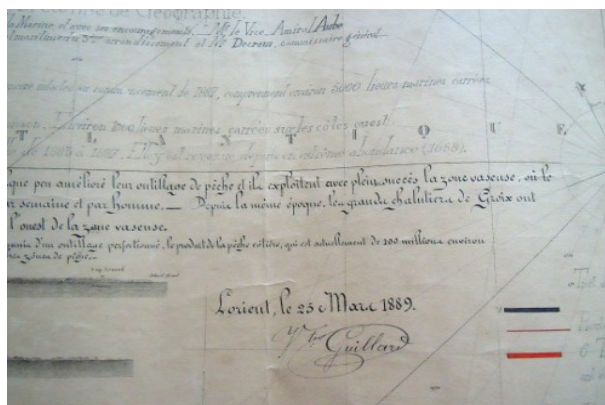 de Géographie
la Marine et avec ses encouragements. Mr. le Vice Amiral Aube
maritime du 3me arrondissement et Mr Decrens, commissaire général
commencement de 1887, comprenant environ 5000 lieues marines carrées
Environ 1000 lieues marines carrées sur les côtes ouest.
T L A N T I Q U E
de 1883 à 1887. extrême abondance (1888).
que peu amélioré leur outillage de pêche et ils exploitent avec plein succès la zone vaseuse, où le
par semaine et par homme. — Depuis la même époque, les grands chalutiers de Groix ont
l'ouest de la zone vaseuse.
d'un outillage perfectionné, le produit de la pêche côtière, qui est actuellement de 100 millions environ
zones de pêche.
Lorient, le 25 Mars 1889.
Guillard